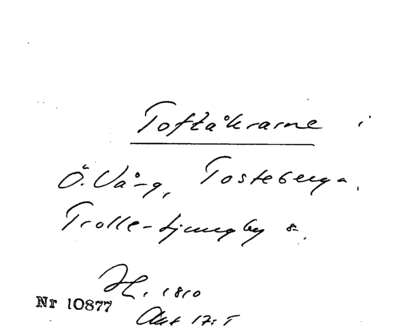 Toftåkrarne i
Ö. Vång, Tosteberga,
Trolle-Ljungby s.
H. 1810
Nr 10877
Akt 17: I